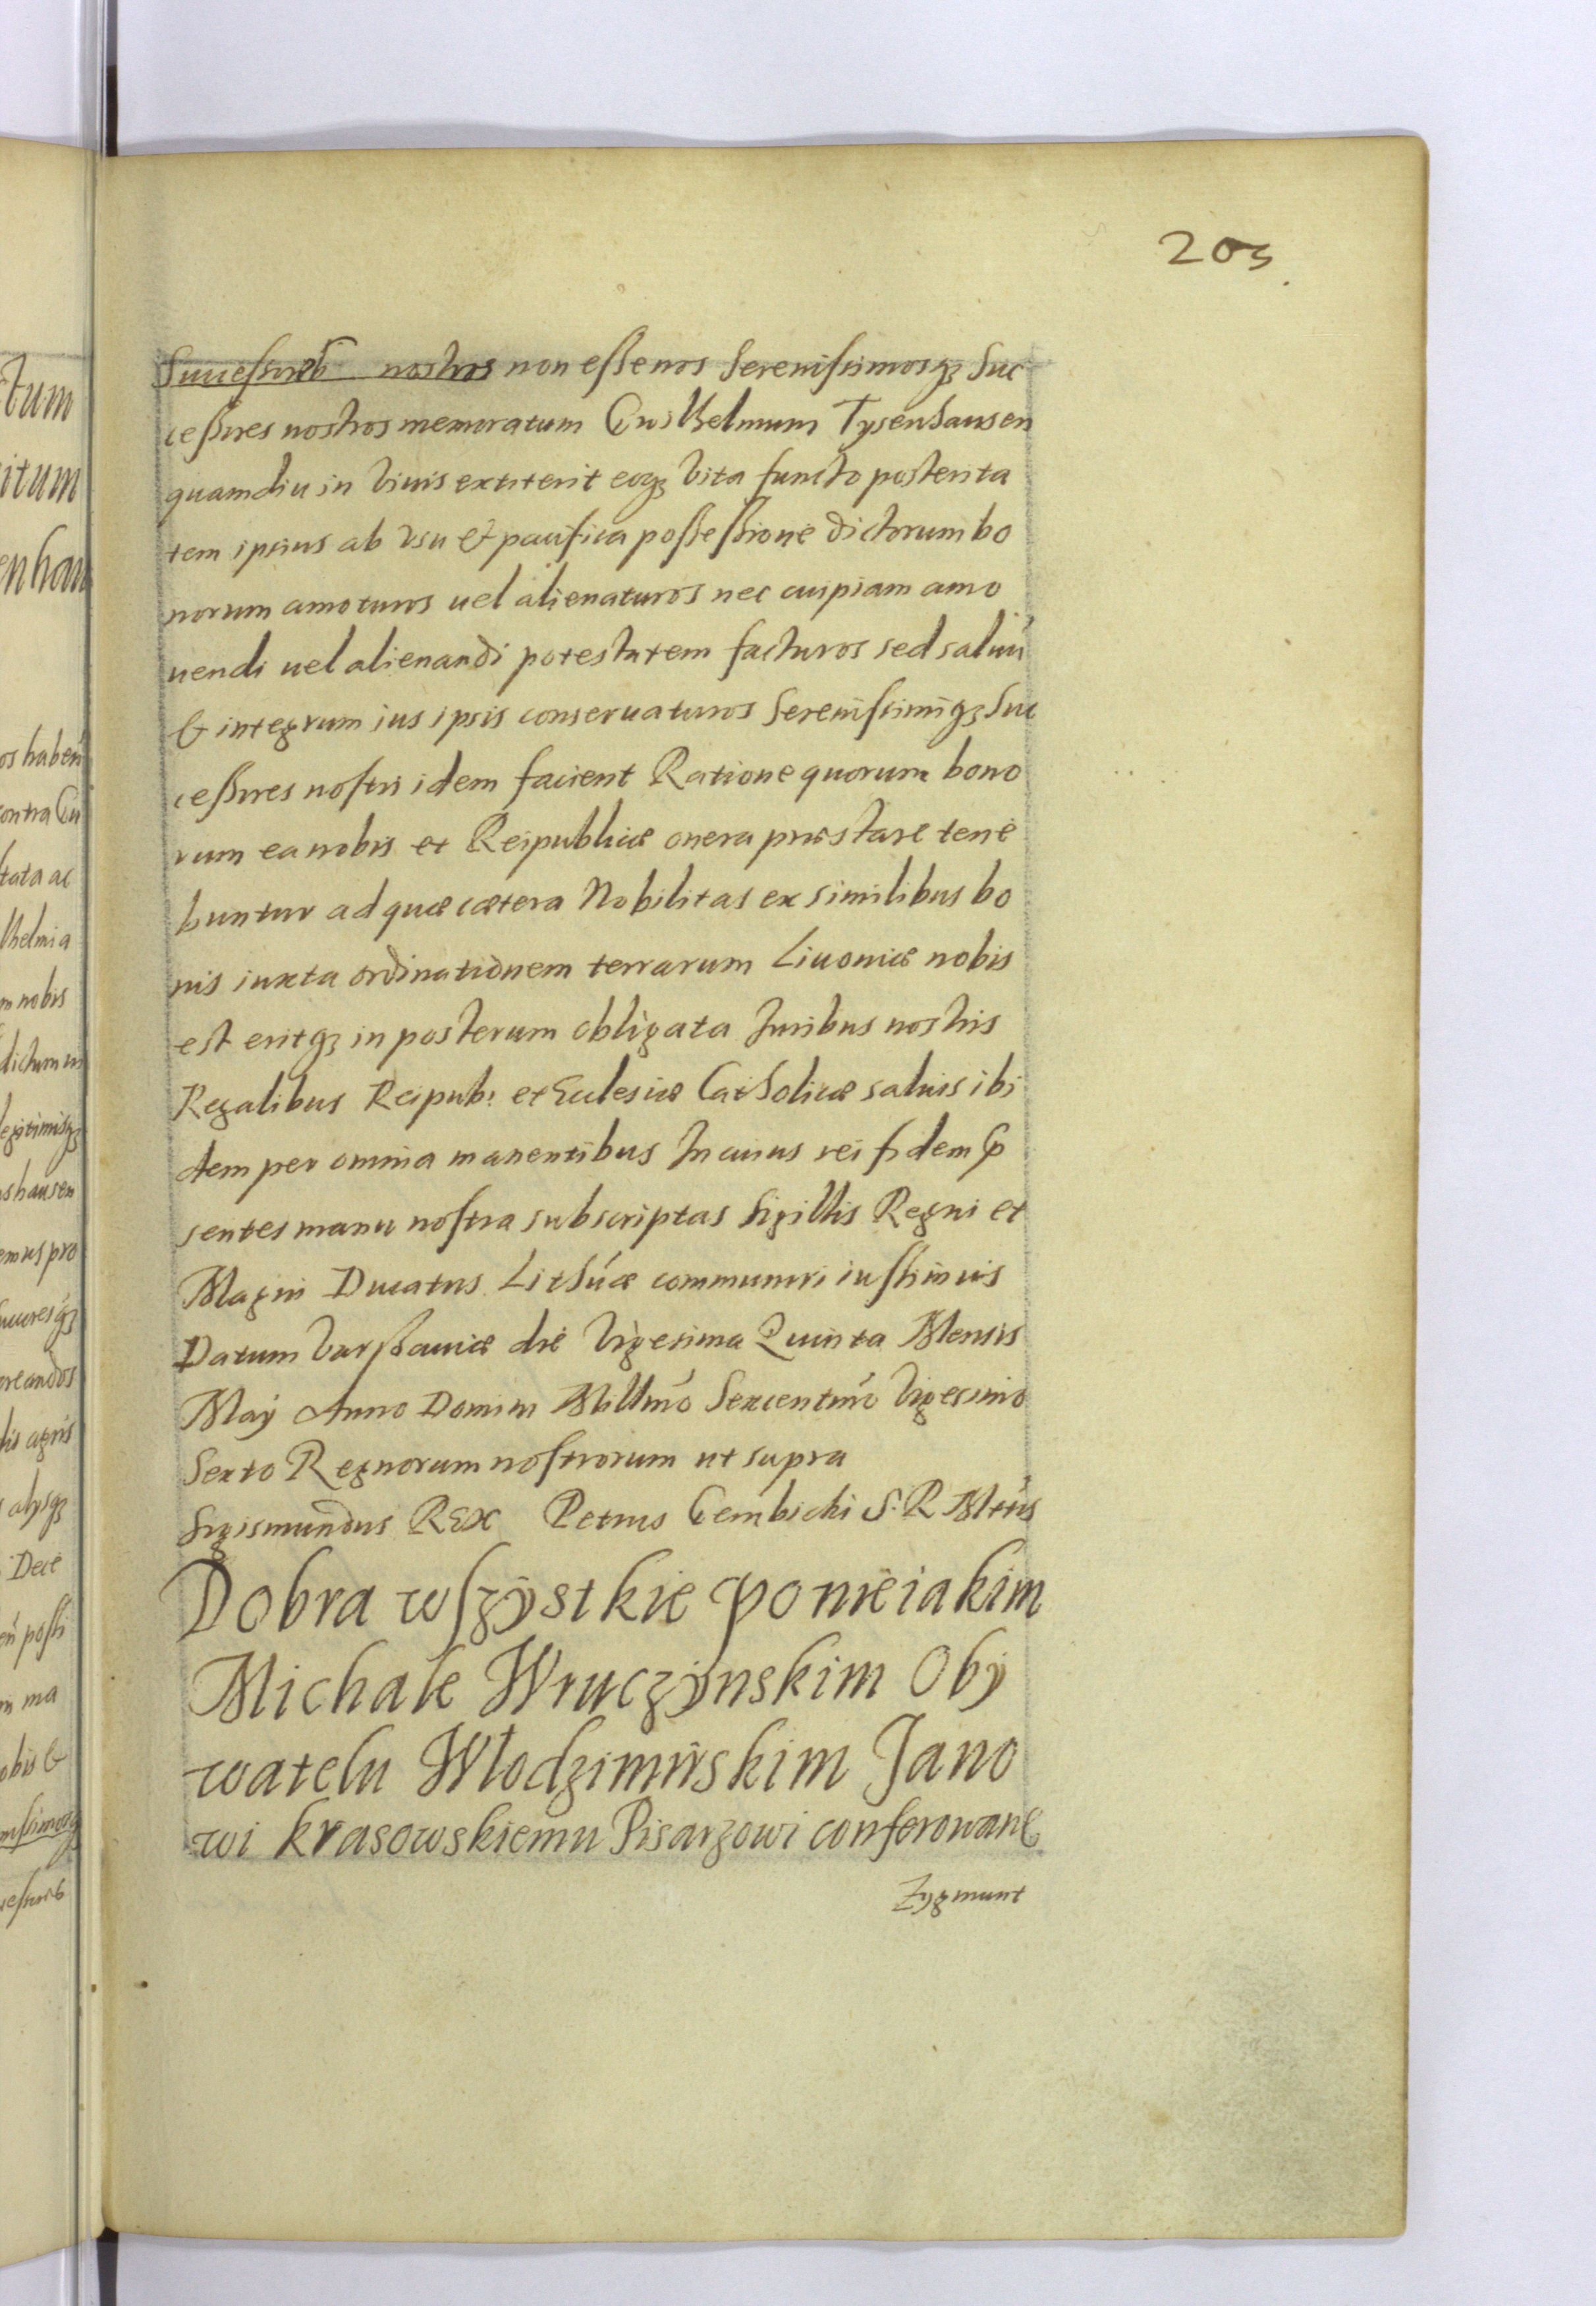 203
Successores nostros non esse nos Serenissimosq3 Suc
cessores nostros memoratum Guilhelmum Tysenhausen
quamdiu in viuis extiterit eoq3 vita functo posterita
tem ipsius ab vsu et pacifica possessione dictorum bo
norum amoturos uel alienaturos nec cuipiam amo
uendi uel alienandi potestatem facturos sed saluū
& integrum ius ipsis conseruaturos Serenissimiq3 Suc
cessores nostri idem facient Ratione quorum bono
rum ea nobis et Reipublicæ onera præstare tene
buntur ad quæ cætera Nobilitas ex similibus bo
nis iuxta ordinationem terrarum Liuoniæ nobis
est eritq3 in posterum obligata Juribus nostris
Regalibus Reipub: et Ecclesiæ Catholicæ saluis ibi
dem per omnia manentibus In cuius rei fidem p
sentes manu nostra subscriptas Sigillis Regni et
Magni Ducatus Lithúæ communiri iussimus
Datum Varssauiæ die Vigesima Quinta Mensis
Maÿ Anno Domini Millmó Sexcentmó Vigesimo
Sexto Regnorum nostrorum ut supra
Sigismundus REX Petrus Gembicki S. R. Mttis
Dobra wszÿstkie po nieiakim
Michale Wruczÿnskim Obÿ
watelu Włodzimirskim Jano
wi krasowskiemu Pisarzowi conferowane
Zygmunt
tum
itum
enhau
os haben
contra Gu
tata ac
lhelmi a
m nobis
dictum
legitimisq3
shausen
emus pro
oreandos
dis agris
alysq3
Dece
posti
m ma
obis &
nissimosq3
cessores